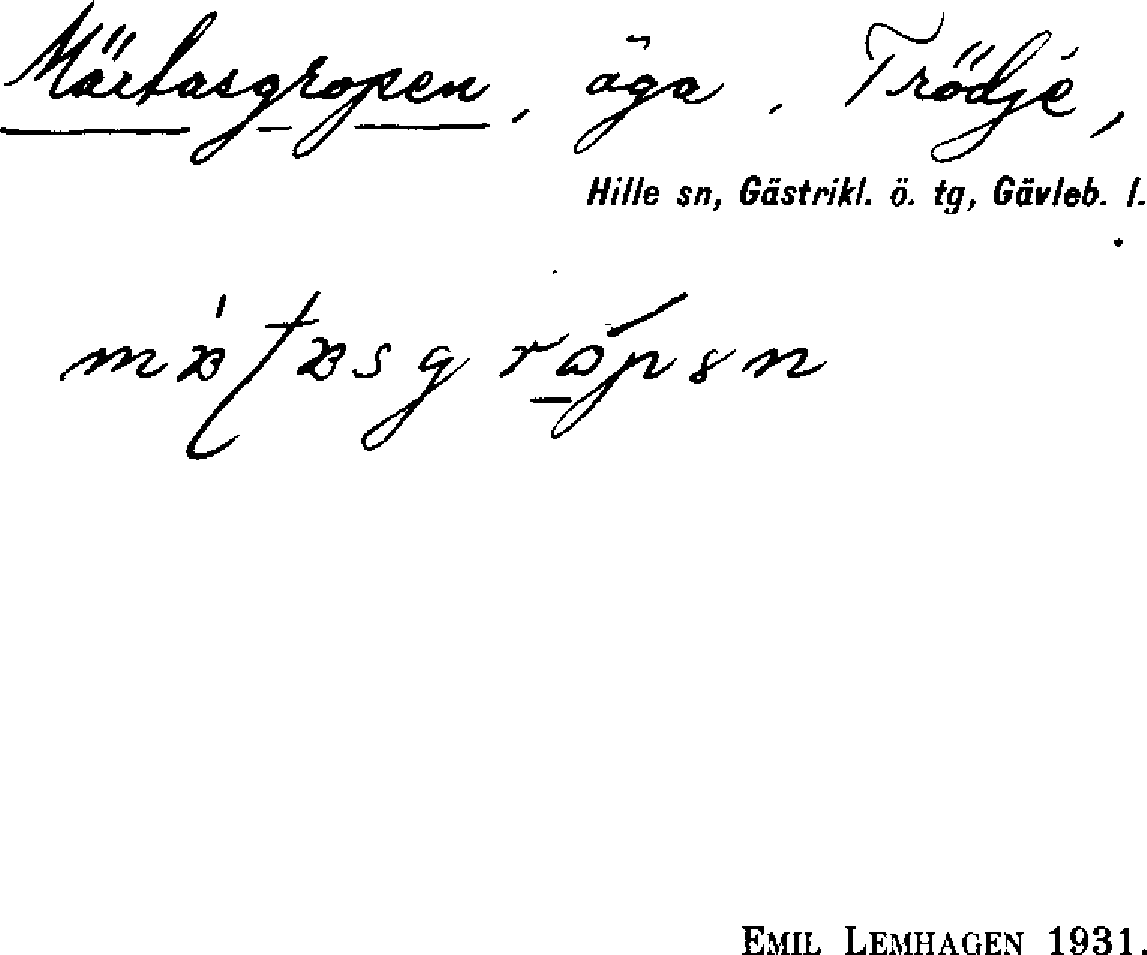 Märtasgropen, äga. Trödjé,
Hille sn, Gästrikl. ö. tg, Gävleb. l.
EMIL LEMHAGEN 1931.